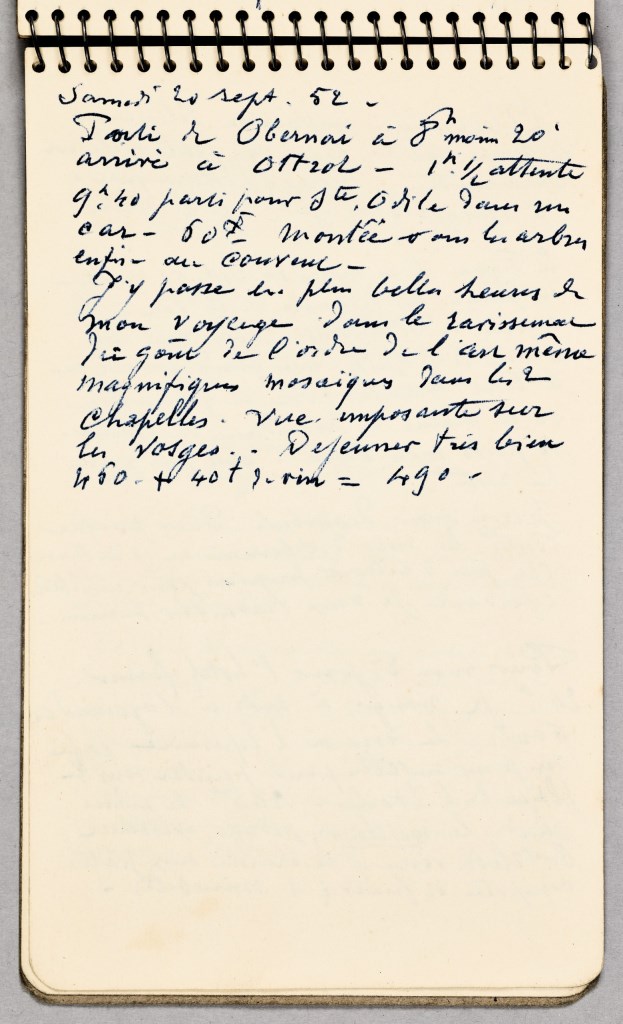 Samedi 20 sept. 52 -
Parti de Obernai à 8h moins 20'
arrivé à Ottrot - 1h. 1/2 attente
9h.40 parti pour Ste. Odile dans un
car - 60f. Montée sous les arbres
enfin au couvent -
J'y passe les plus belles heures de
mon voyage dans le ravissement
du goût de l'ordre de l'art même
magnifiques mosaïques dans les 2
chapelles. Vue imposante sur
les Vosges. - Dejeuner très bien
450 + 40f de vin = 490 -